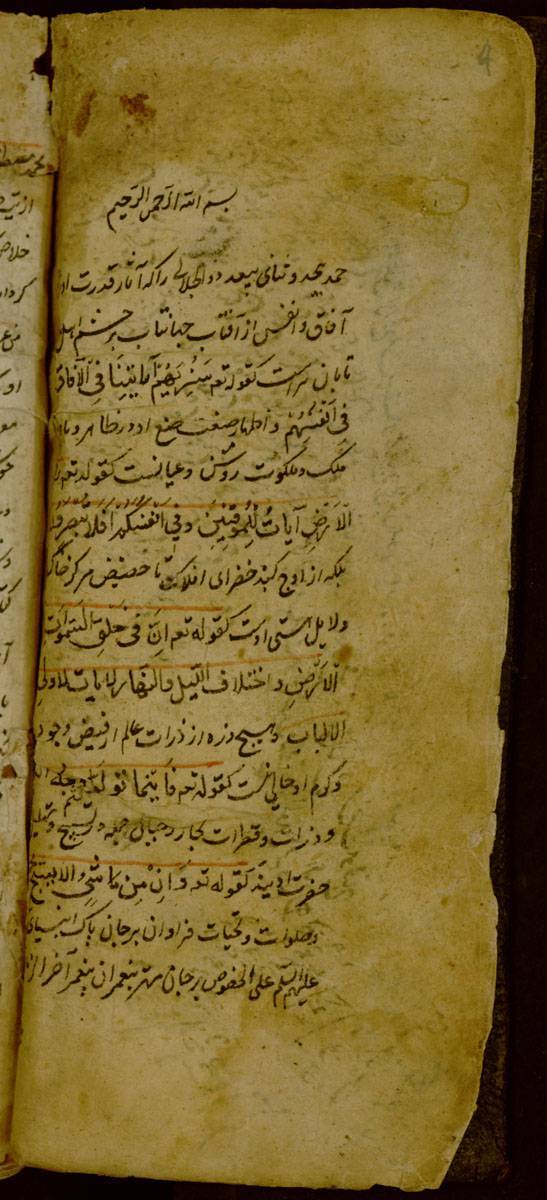 بسم الله الرحمن الرحیم
حمد بیحد و ثنای بیعد ذو الجلالی را که آثار قدرت او از
آفاق و انفس از آفتاب جهانتاب بر چشم اهل
تابان تر است کقوله تعه سَنُرِیهِمْ آیَاتِنَا فِی الْآفَاقِ
فِی اَنْفُسِهِمْ و اظهار صنعت صنع او در ظاهر و
ملک و ملکوت روشن و عیانست کقوله تعه
الْاَرْضِ آیَاتٌ لِلْمُوقِنِینَ وَفِی اَنْفُسِکُمْ اَفَلَا تُبْصِرُونَ
بلکه از اوج گنبد خضرای افلاک تا حضیض مرکز خاک
دلایل هستی اوست کقوله تعه اِنَّ فِی خَلْقِ السَّمَوَاتِ
الْاَرْضِ وَاخْتِلَافِ اللَّیْلِ وَالنَّهَارِ لَآیَات لِاُولِی
الالباب و هیچ ذره از ذرات عالم از فیض وجود
و کرم او خالی نیست کقوله تعه فَاَیْنَمَا تُوَلُّوا فَثَمَّ وَجْهُ الله
و ذرات و قطرات بحار و جبال همه در تسبیح و تهلیل
حضرت اویند کقوله تعه وَاِنْ مِنْ شَیْءٍ اِلَّا یُسَبِّحُ
و صلوات و تحیات فراوان بر جان پاک انبیای
علیهم السلم علی الخصوص بر جان مهتر پیغمبران پیغمبر آخر الز